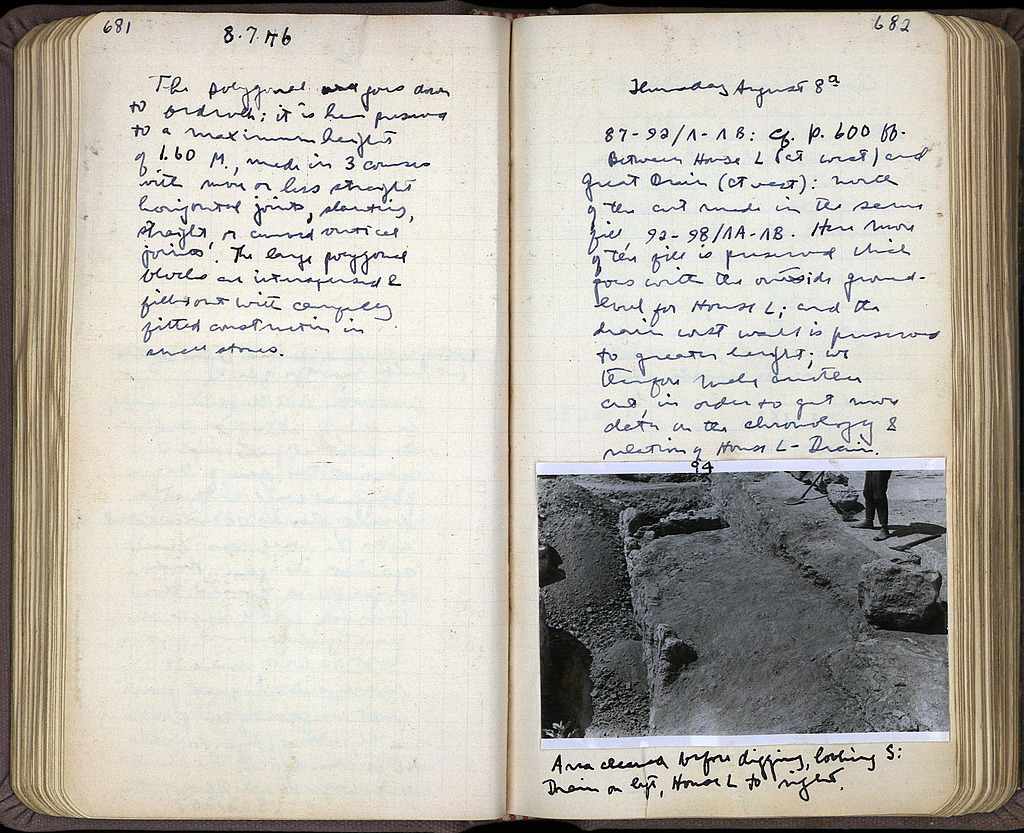 681
8.7.46
The polygonal goes down
to bedrock; it is here preserved
to a maximum height
of 1.60 M., made in 3 courses
with more or less straight
horizontal joints, slanting,
straight, or curved vertical
joints. The large polygonal
blocks are interspersed &
filled out with carefully
fitted construction in
small stones.
682
Thursday August 8th
87-92/Λ-ΛB: cf. p. 600 ff.
Between House L (at west) and
Great Drain (at west): north
of the cut made in the same
fill, 92-98/ΛA-ΛB. Here more
of the fill is preserved which
goes with the outside ground-
level for House L; and the
drain west wall is preserved
to greater height; we
therefore make another
cut, in order to get more
data on the chronology &
relation of House L - Drain.
94
Area cleared before digging, looking S:
Drain on left, House L to right.